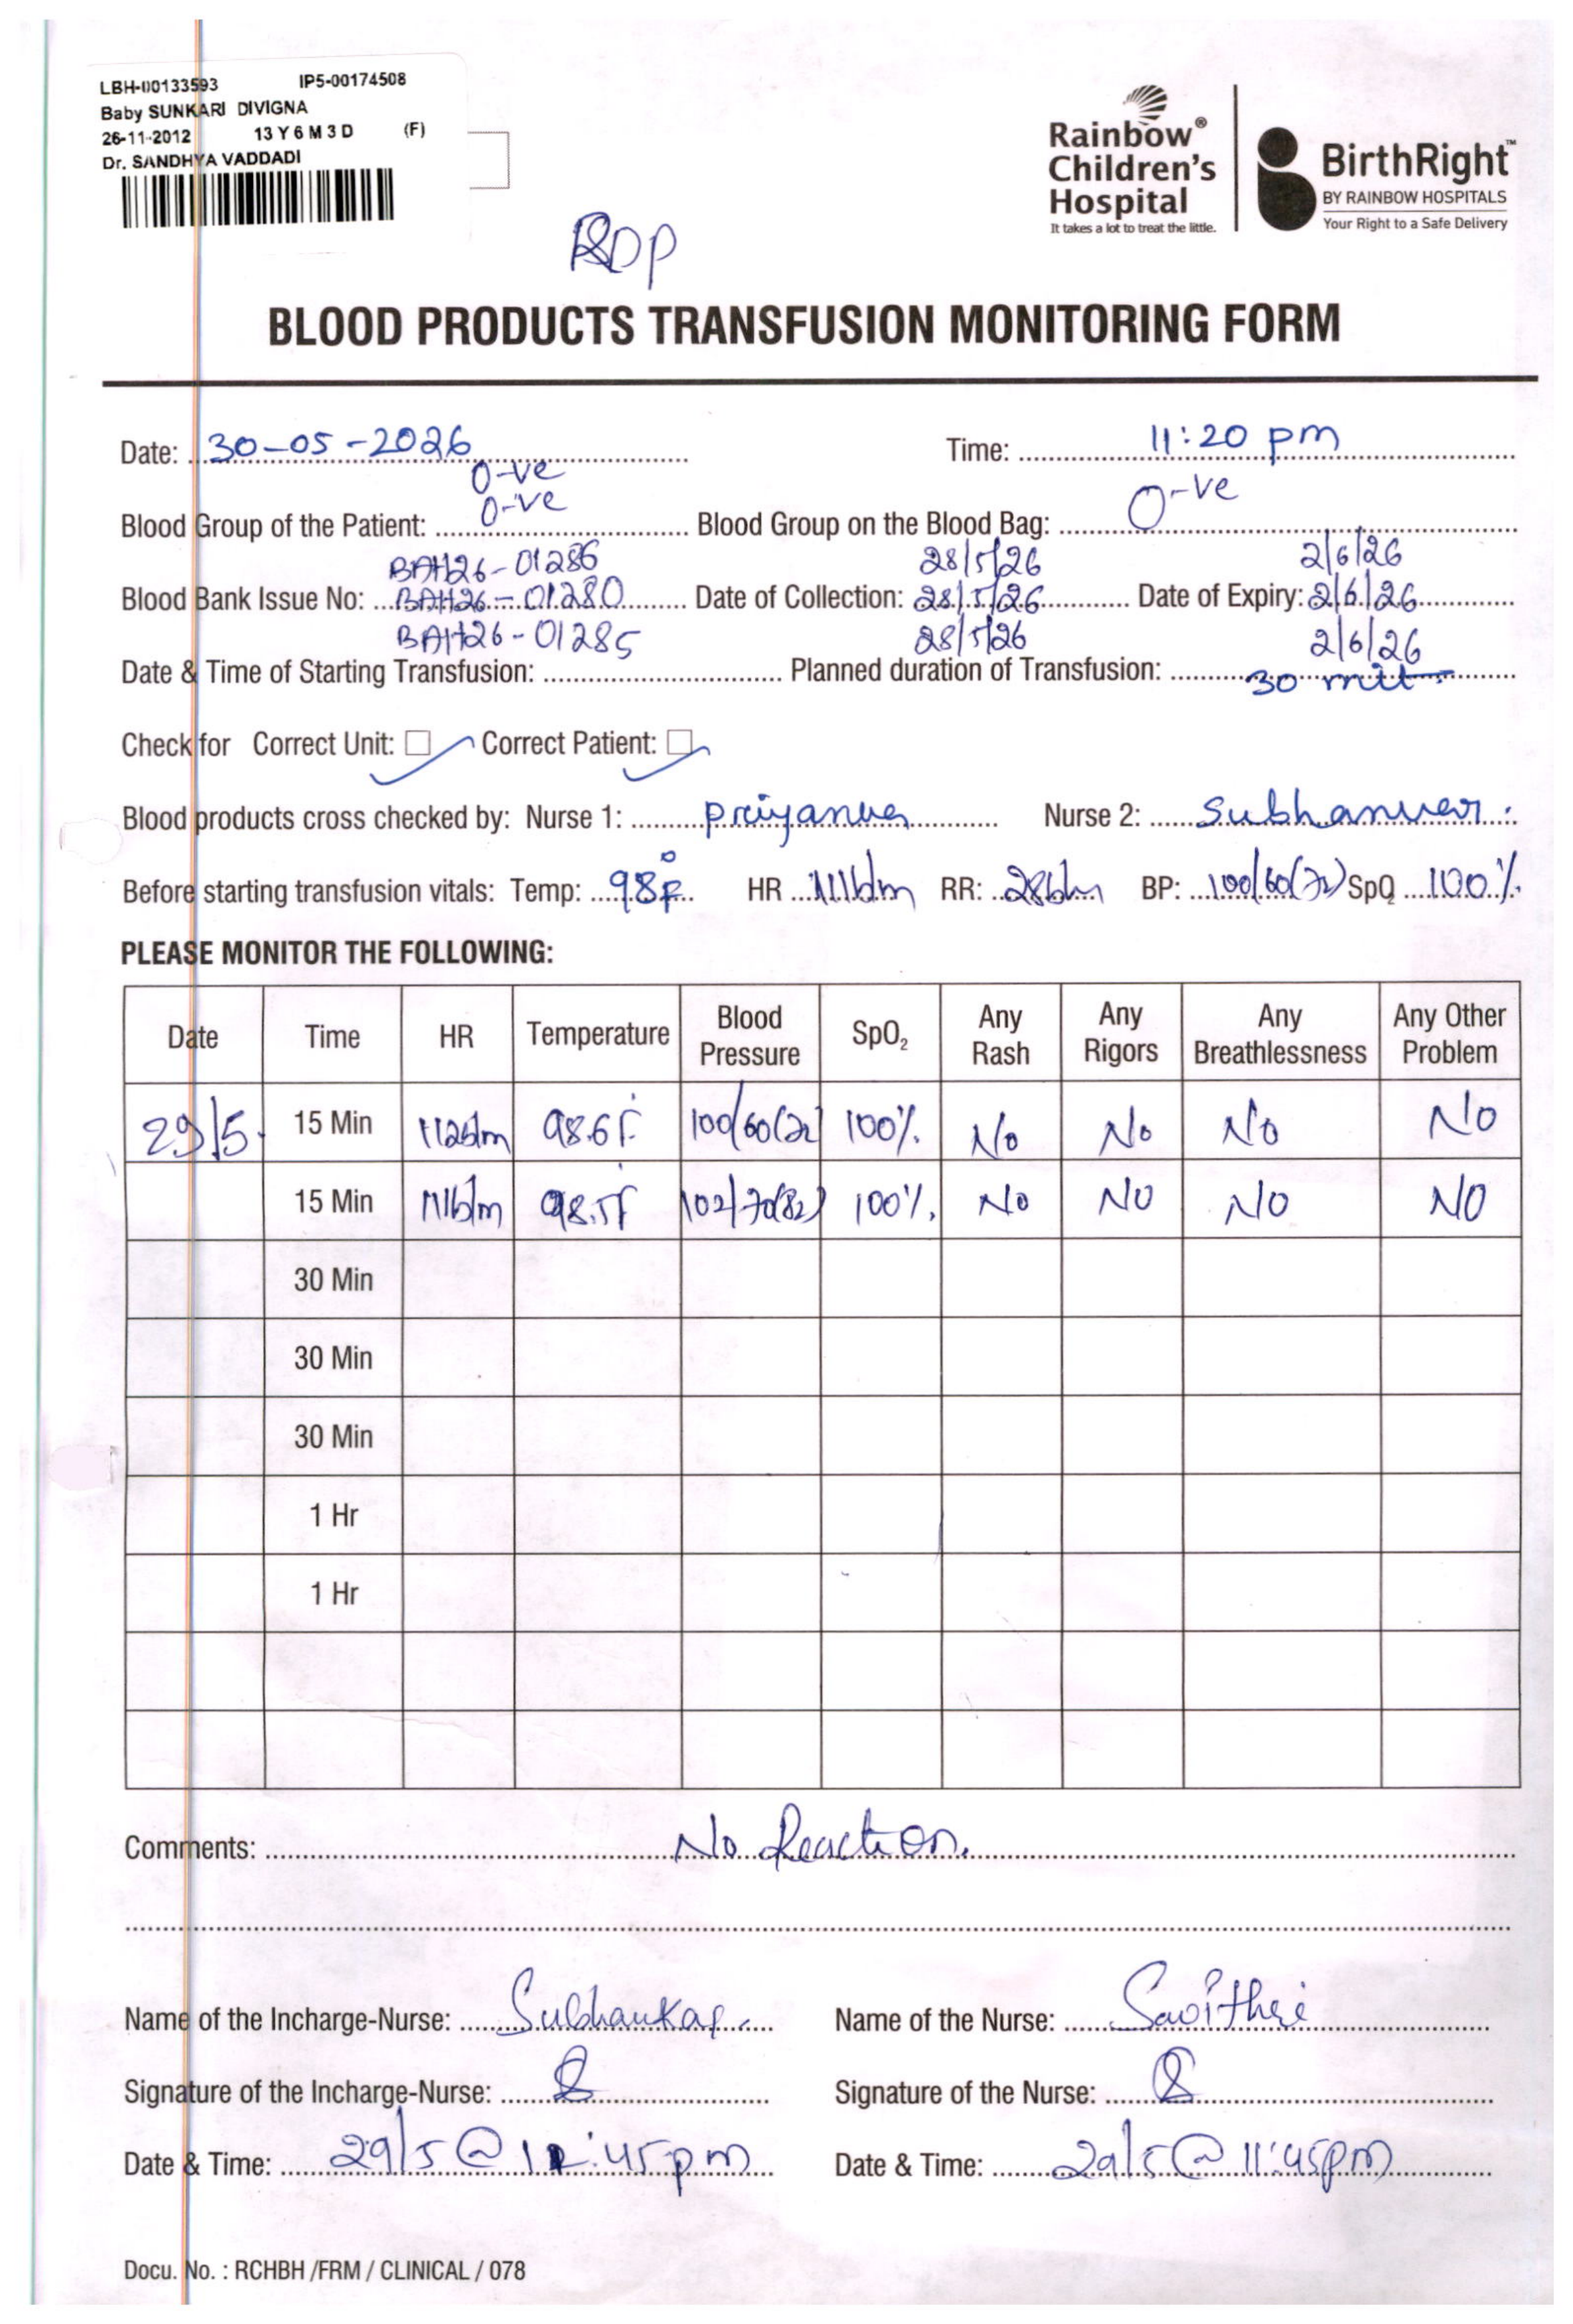 LBH-00133593 IP5-00174508
Baby SUNKARI DIVIGNA
26-11-2012 13 Y 6 M 3 D (F)
Dr. SANDHYA VADDADI
Rainbow®
Children's
Hospital
It takes a lot to treat the little.
BirthRight™
BY RAINBOW HOSPITALS
Your Right to a Safe Delivery
RDP
BLOOD PRODUCTS TRANSFUSION MONITORING FORM
Date: 30-05-2026 Time: 11:20 pm
O-ve
Blood Group of the Patient: O-ve Blood Group on the Blood Bag: O-ve
BAH26-01286 28/5/26 2/6/26
Blood Bank Issue No: BAH26-01280 Date of Collection: 28/5/26 Date of Expiry: 2/6/26
BAH26-01285 28/5/26 2/6/26
Date & Time of Starting Transfusion: Planned duration of Transfusion: 30 mit
Check for Correct Unit: ☐ ✓ Correct Patient: ☐ ✓
Blood products cross checked by: Nurse 1: Nurse 2:
Before starting transfusion vitals: Temp: 98°F HR 111b/m RR: 28b/m BP: 100/60(72) SpO2 100%
PLEASE MONITOR THE FOLLOWING:
Date Time HR Temperature Blood Pressure SpO2 Any Rash Any Rigors Any Breathlessness Any Other Problem
29/5. 15 Min 112b/m 98.6°F 100/60(72) 100% No No No No
15 Min 111b/m 98.5°F 102/70(82) 100% No NO NO NO
30 Min
30 Min
30 Min
1 Hr
1 Hr
Comments: No Reaction.
Name of the Incharge-Nurse: Subhankar Name of the Nurse: Savithri
Signature of the Incharge-Nurse: Signature of the Nurse:
Date & Time: 29/5 @ :45pm Date & Time: 29/5 @ 11:45pm
Docu. No. : RCHBH /FRM / CLINICAL / 078